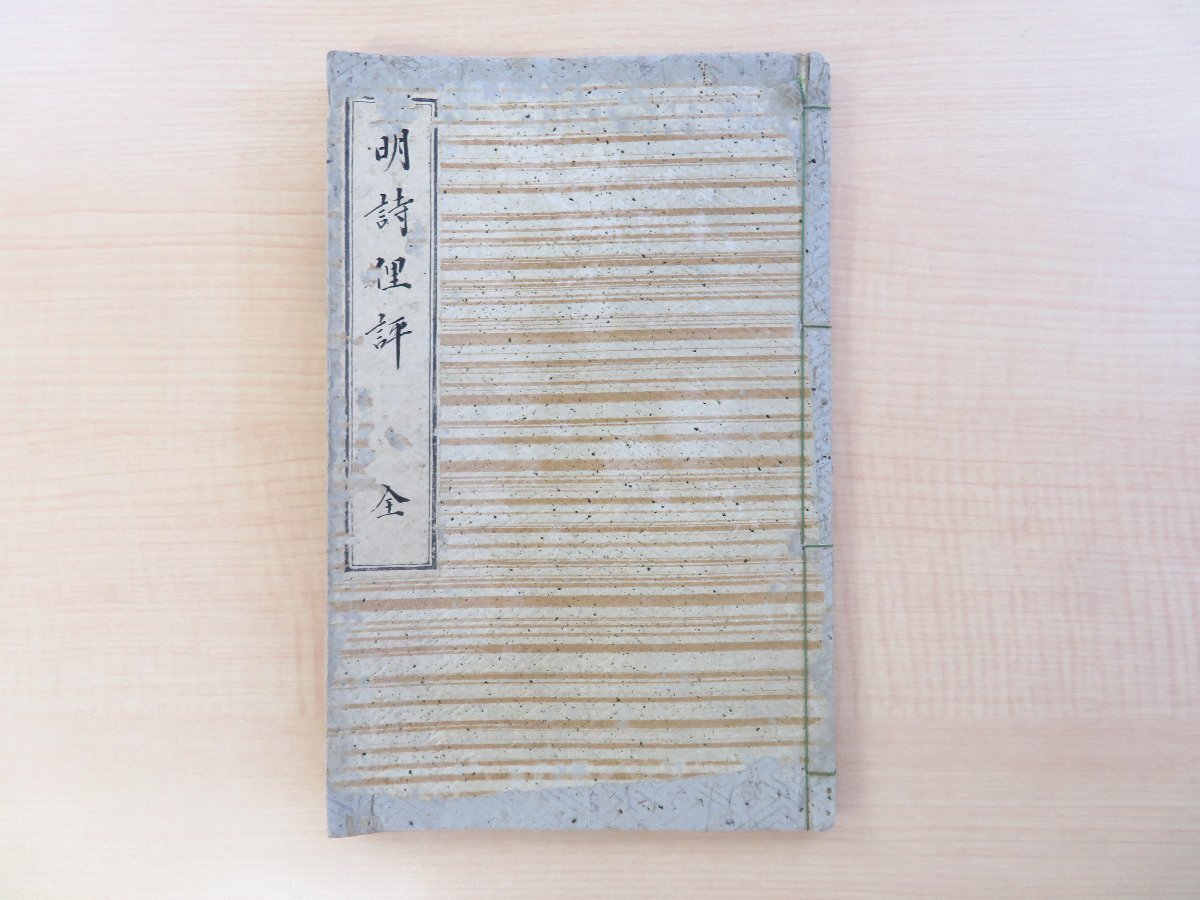 明詩俚評 全